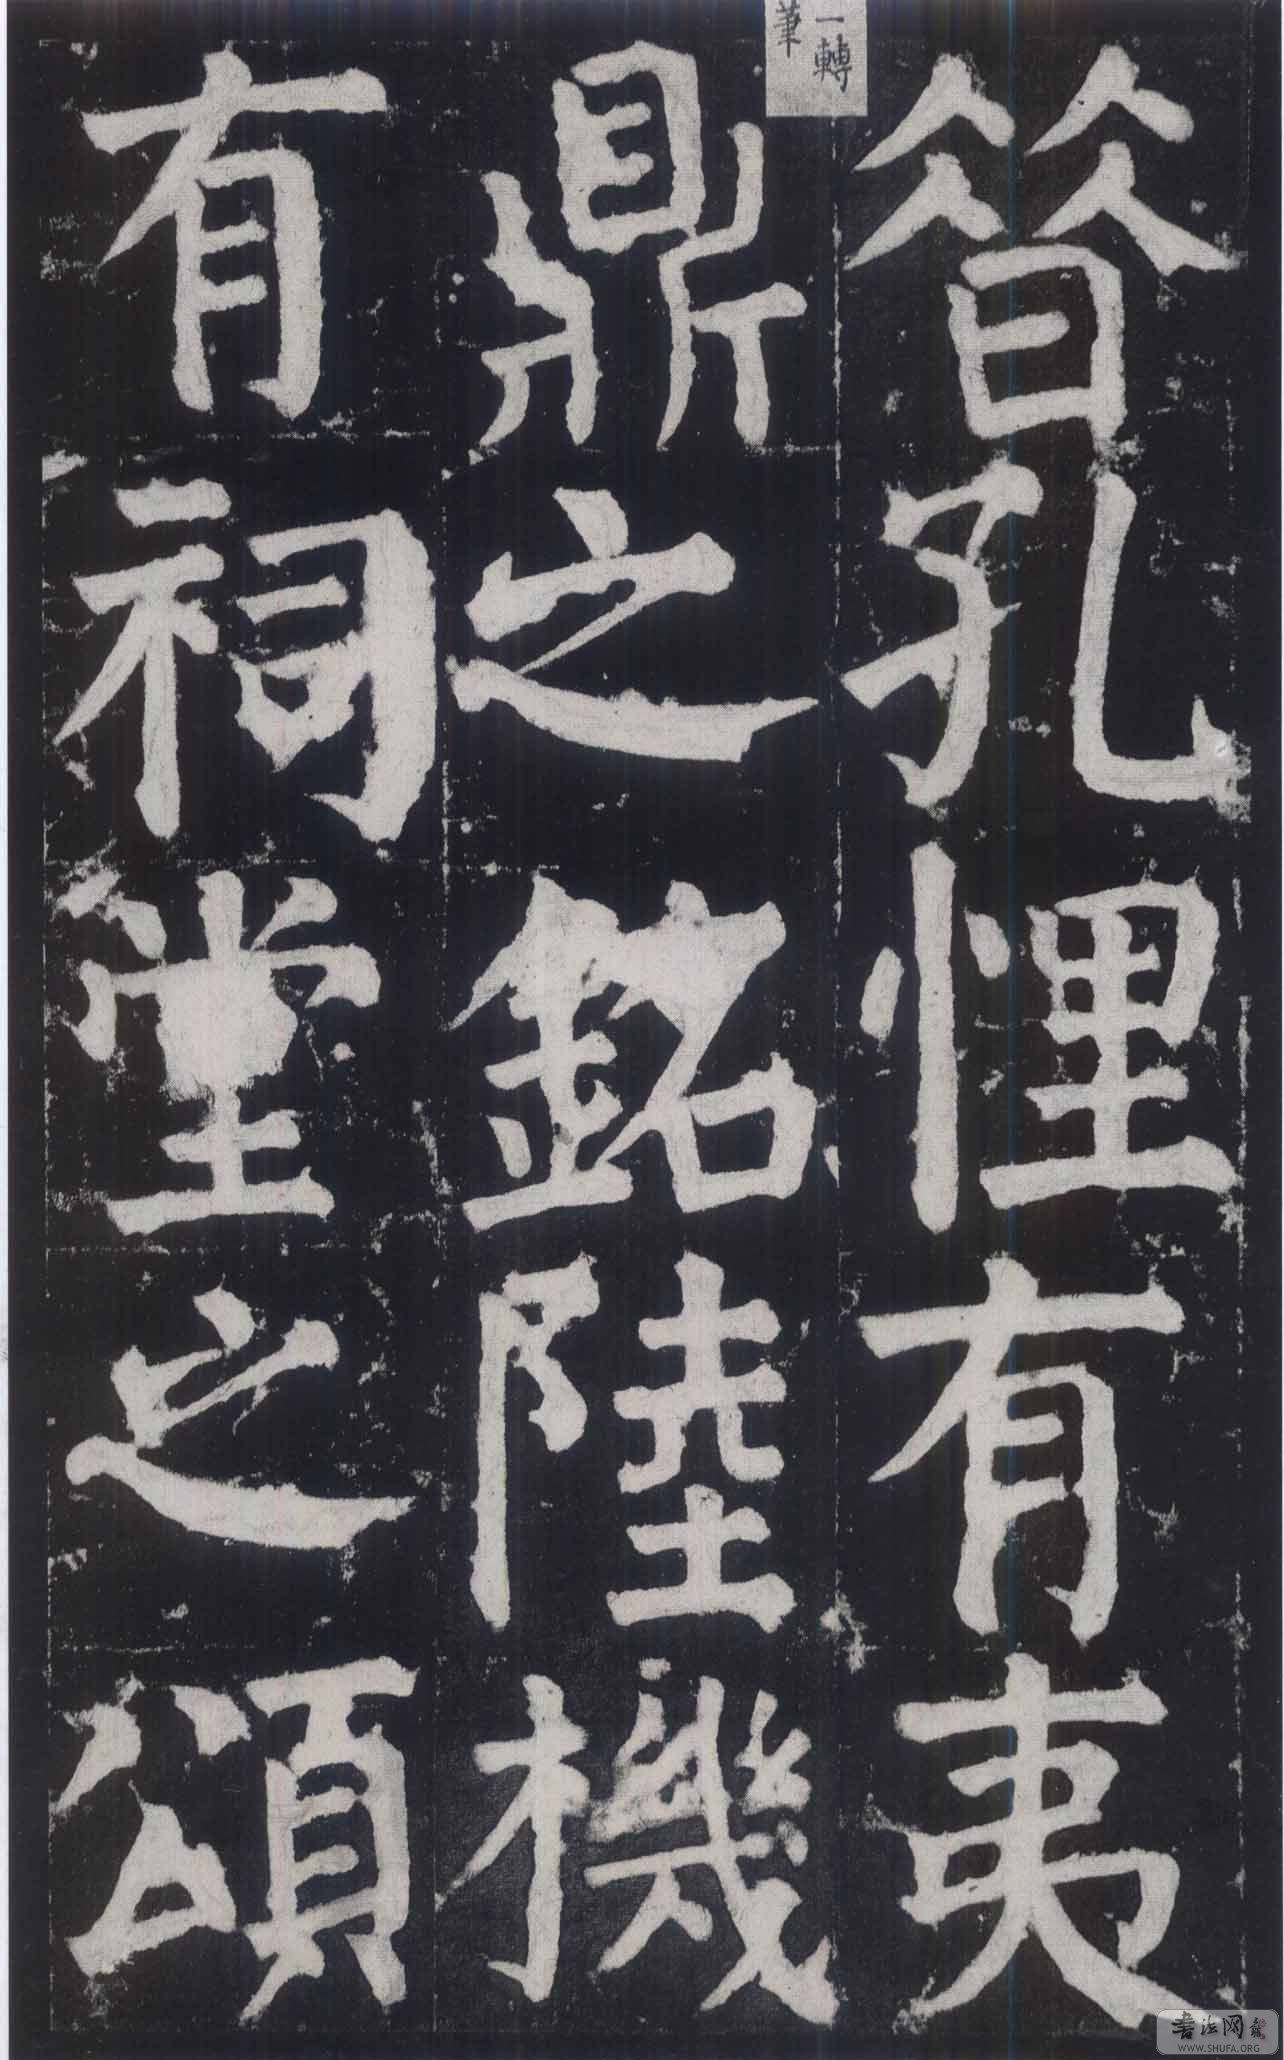 昔孔悝有夷
一轉
筆
鼎之銘陸機
有祠堂之頌
书法网
WWW.SHUFA.ORG